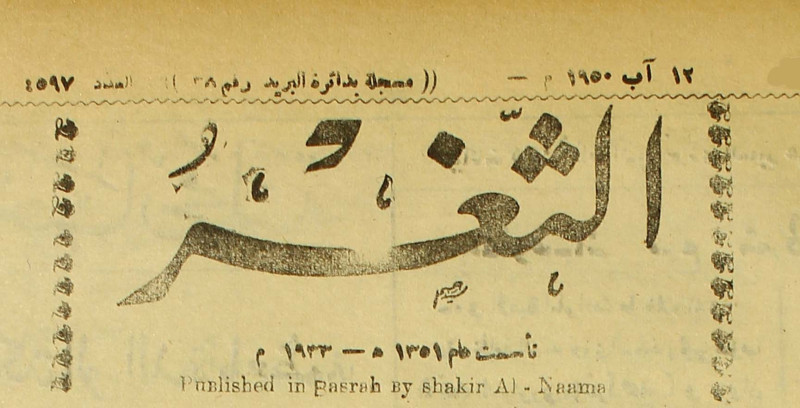 ١٢ آب ١٩٥٠ م — (( مسجلة بدائرة البريد رقم ٣٨ )) العدد ٤٥٩٧
الثغر
تأسست عام ١٣٥١ ه — ١٩٣٣ م
Published in Basrah By shakir Al - Naama